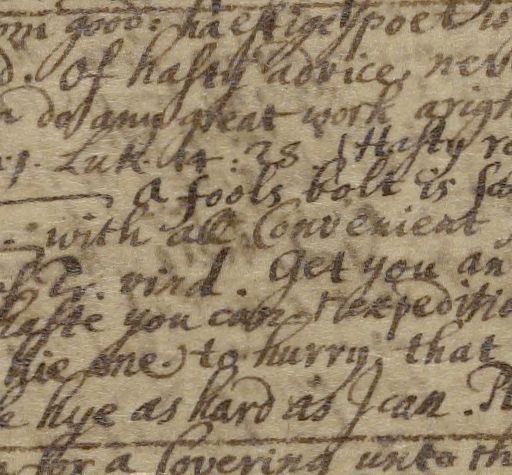 om good: haestige spoet is
d. Of hasty advice, nev
do any great work arigh
Luk. 14: 28. (Hasty
A fools bolt is
with all Convenient
rind. Get you an
haste you can. + expeditio
hie one.) to hurry, that
hye as hard as J can.
for a Covering unto th